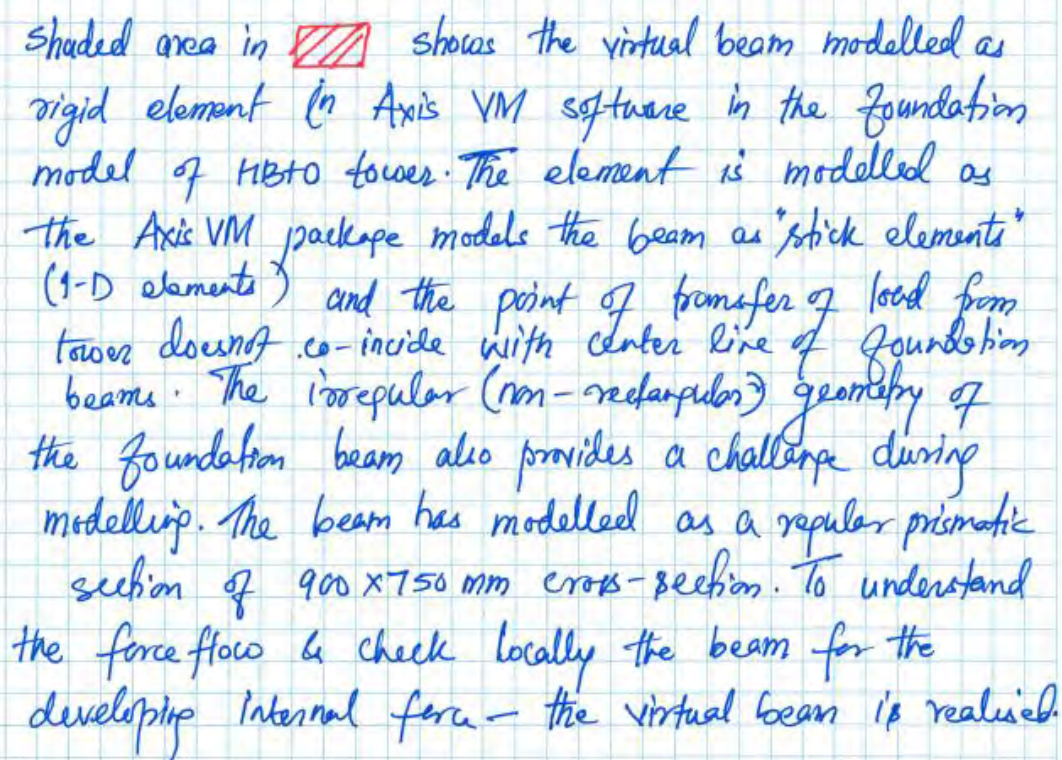 Shaded area in shows the virtual beam modelled as
rigid element in Axis VM software in the foundation
model of HB40 tower. The element is modelled as
the Axis VM package models the beam as "stick elements"
(1-D elements) and the point of transfer of load from
tower doesnot co-incide with center line of foundation
beams. The irregular (non-rectangular) geometry of
the foundation beam also provides a challenge during
modelling. The beam has modelled as a regular prismatic
section of 900 x 750 mm cross-section. To understand
the force flow & check locally the beam for the
developing internal force - the virtual beam is realised.